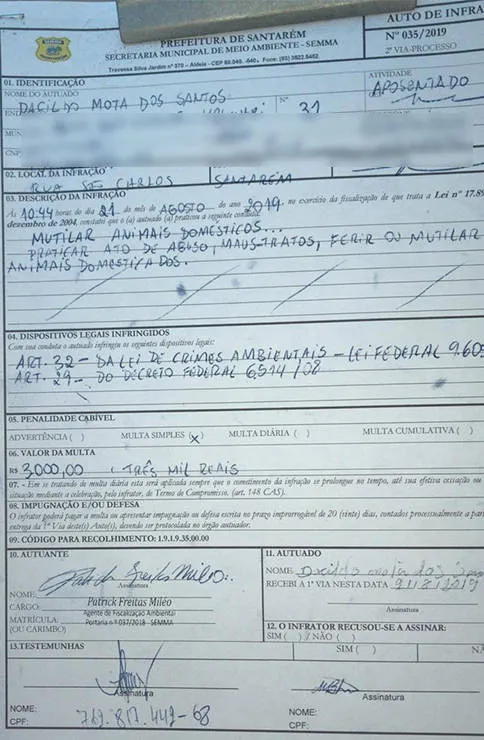 PREFEITURA DE SANTARÉM
SECRETARIA MUNICIPAL DE MEIO AMBIENTE - SEMMA
Travessa Silva Jardim nº 370 – Aldeia - CEP 68.040. -640
AUTO DE INFRA
Nº 035/2019
2ª VIA-PROCESSO
01. IDENTIFICAÇÃO
NOME DO AUTUADO
DACILDO MOTA DOS SANTOS
ATIVIDADE
APOSENTADO
Nº 31
02. LOCAL DA INFRAÇÃO
RUA SÃO CARLOS SANTARÉM
03. DESCRIÇÃO DA INFRAÇÃO
Às 10:44 horas do dia 21 do mês de AGOSTO do ano 2019, no exercício da fiscalização de que trata a Lei nº 17.89
dezembro de 2004, constatei que o (a) autuado (a) praticou a seguinte conduta:
MUTILAR ANIMAIS DOMÉSTICOS...
PRATICAR ATO DE ABUSO, MAUS-TRATOS, FERIR OU MUTILAR
ANIMAIS DOMESTICADOS.
04. DISPOSITIVOS LEGAIS INFRINGIDOS
Com sua conduta o autuado infringiu os seguintes dispositivos legais:
ART. 32 - DA LEI DE CRIMES AMBIENTAIS - LEI FEDERAL 9.605
ART. 29 - DO DECRETO FEDERAL 6514/08
05. PENALIDADE CABÍVEL
ADVERTÊNCIA ( ) MULTA SIMPLES (X) MULTA DIÁRIA ( ) MULTA CUMULATIVA ( )
06. VALOR DA MULTA
R$ 3.000,00 (TRÊS MIL REAIS
07. - Em se tratando de multa diária esta será aplicada sempre que o cometimento da infração se prolongue no tempo, até sua efetiva cessação ou
situação mediante a celebração, pelo infrator, de Termo de Compromisso. (art. 148 CAS).
08. IMPUGNAÇÃO E/OU DEFESA
O infrator poderá pagar a multa ou apresentar impugnação ou defesa escrita no prazo improrrogável de 20 (vinte) dias, contados processualmente a par
entrega da 1ª Via deste(s) Auto(s), devendo ser protocolada no órgão autuador.
09. CÓDIGO PARA RECOLHIMENTO: 1.9.1.9.35.00.00
10. AUTUANTE
Assinatura
NOME:
CARGO:
MATRÍCULA:
(OU CARIMBO)
Patrick Freitas Miléo
Agente de Fiscalização Ambiental
Portaria nº 037/2018 - SEMMA
11. AUTUADO
NOME Dacildo mota dos
RECEBI A 1ª VIA NESTA DATA
Assinatura
12. O INFRATOR RECUSOU-SE A ASSINAR:
SIM ( ) / NÃO ( )
13.TESTEMUNHAS
SIM ( )
Assinatura
Assinatura
NOME:
CPF: 769.817.442-68
NOME:
CPF: